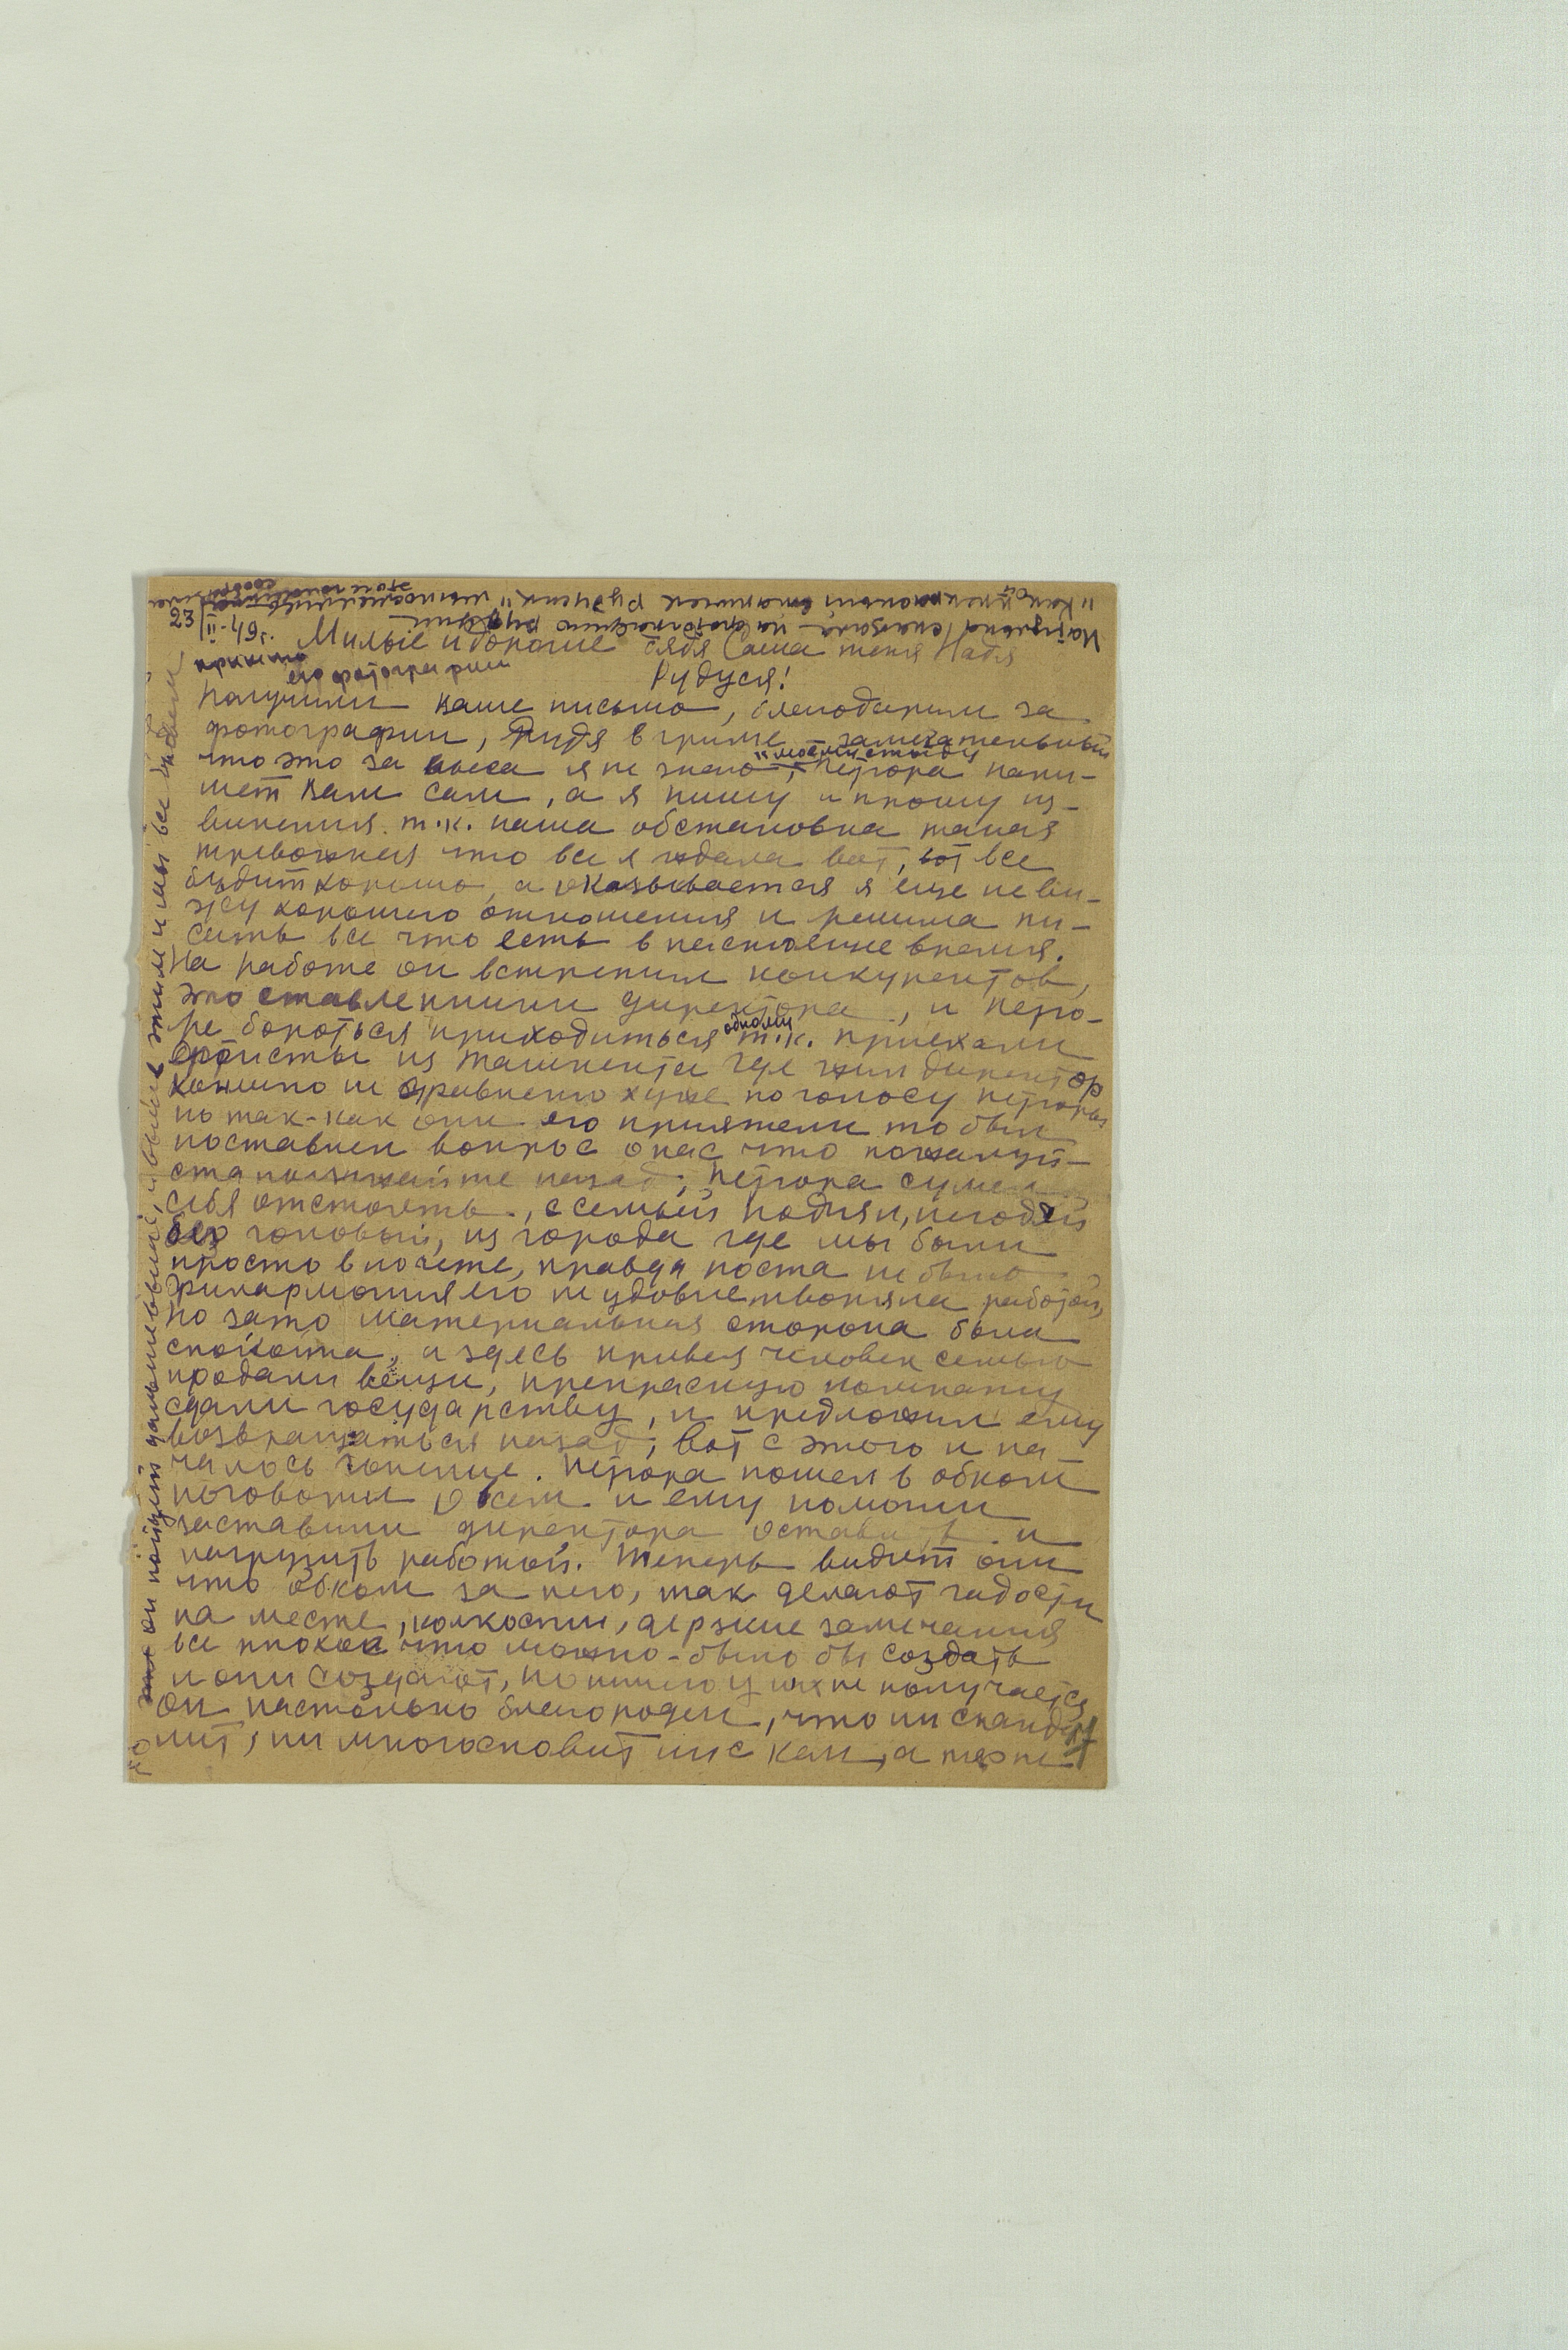 23/II-49г. Милые и дорогие дядя Саша тетя Надя
Рудуся!
Получили ваше письмо, благодарим за
фотографии, Рудя в гриме – замечательный
что это за пьеса я не знаю "к моему стыду", Петрора напи-
шет вам сам, а я пишу и прошу из-
винения. т.к. наша обстановка такая
тревожная что все я ждала вот, вот все
будит хорошо, а оказывается я еще не ви-
жу хорошего отношения и решила пи-
сать все что есть в настоящее время.
На работе он встретил конкурентов,
это ставленники директора, и Петро-
ре бороться приходиться одному т.к. приехали
артисты из Ташкента где жил директор
конечно не сравненно хуже по голосу Петроры
но так-как они его приятели то был
поставлен вопрос о нас что пожалуй-
ста поезжайте назад, Петрора сумел
себя отстоять, с семьей поднял, негодяй
без головый, из города где мы были
просто в почете, правда поста не было
Филармония его не удовлетворяла работой,
но зато материальная сторона была
спокойна, а здесь привез человек семью
продали вещи, прекрасную комнату
сдали государству, и предложил ему
возвращаться назад, вот с этого и на
чалось гонение. Петрора пошел в обком
поговорил о всем и ему помогли
заставили директора оставить и
нагрузить работой. Теперь видит они
что обком за него, так делают гадости
на месте, колкости, дерзкие замечания
все плохое что можно-было бы создать
и они создают, но ничего у них не получается
он настолько благороден, что ни сканда-
лит, ни многословит ни с кем, а терпе
он пойдет дальше этим и мы все
Натулька сказала – на фотографию Руди
его фотографии